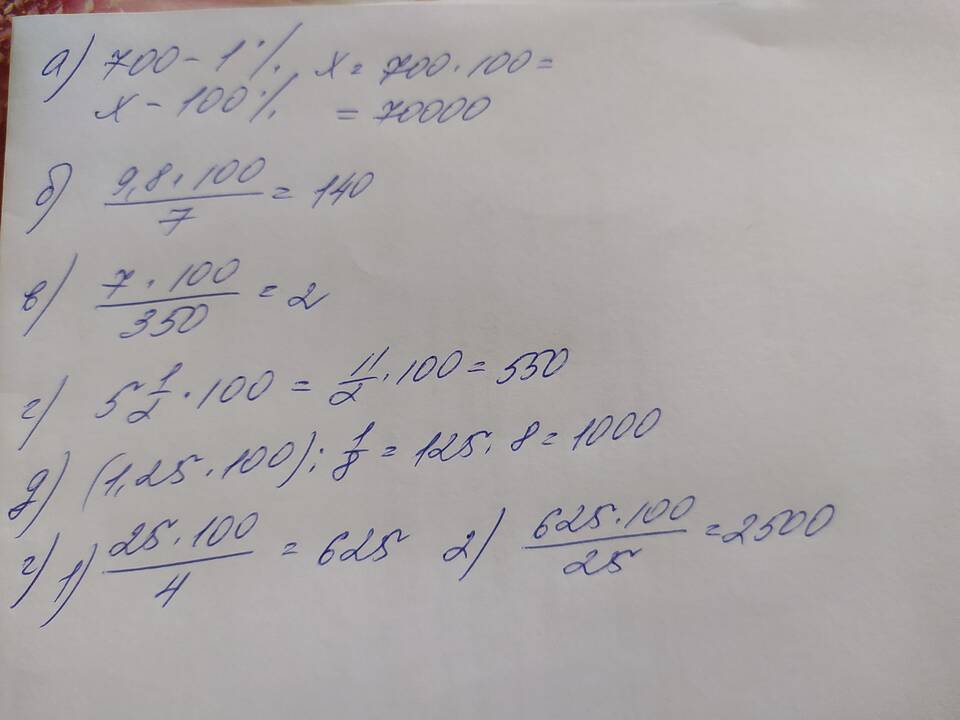 а) 700 - 1% x = 700 · 100 =
x - 100% = 70000
б) 9,8 · 100 / 7 = 140
в) 7 · 100 / 350 = 2
г) 5 1/2 · 100 = 11/2 · 100 = 550
д) (1,25 · 100) : 1/8 = 125 · 8 = 1000
г) 1) 25 · 100 / 4 = 625 2) 625 · 100 / 25 = 2500